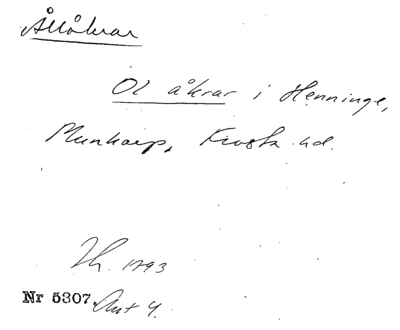 Ålåkrar
Ol åkrar i Henninge,
Munkarp, Frosta hd.
Th. 1793
Nr 5307. Ant 4.